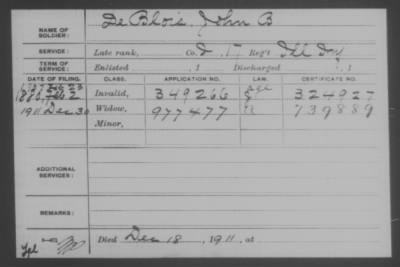 De Blois, John B
NAME OF SOLDIER:
SERVICE: Late rank, Co. D, 17 Reg't Ill Inf
TERM OF SERVICE: Enlisted , 1 Discharged , 1
DATE OF FILING. CLASS. APPLICATION NO. LAW. CERTIFICATE NO.
1880, Feb 2 Invalid, 349266 324927
1911 Dec 30 Widow, 977477 739889
Minor,
ADDITIONAL SERVICES:
REMARKS:
Died Dec 18, 1911, at